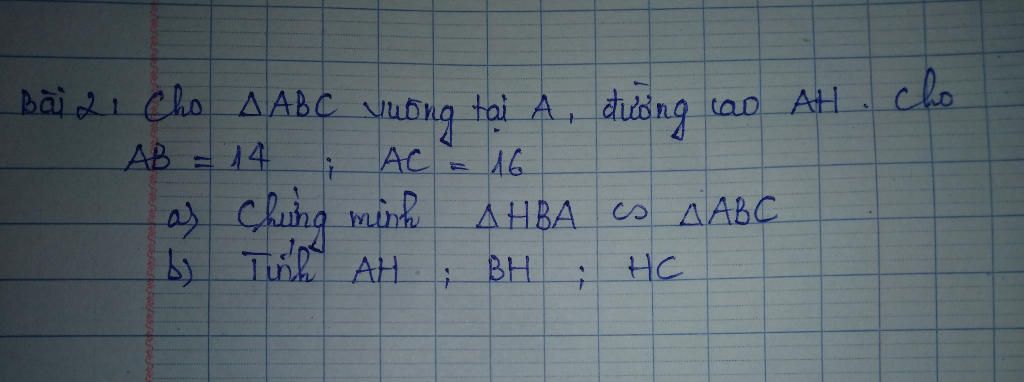 Bài 2: Cho ΔABC vuông tại A, đường cao AH. Cho
AB = 14 ; AC = 16
a) Chứng minh ΔHBA ∽ ΔABC
b) Tính AH ; BH ; HC